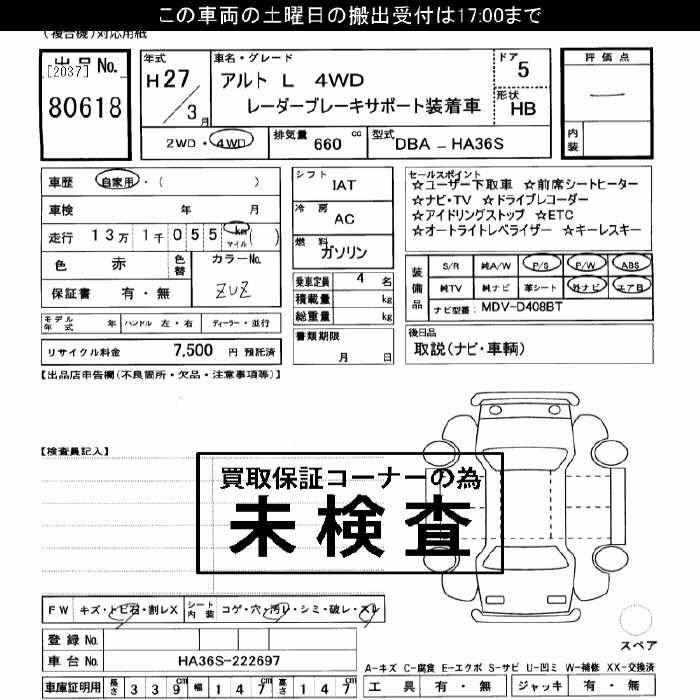 この車両の土曜日の搬出受付は17:00まで
(複合機)対応用紙
出品No.
[2037]
80618
年式
H27/3月
車名・グレード
アルト L 4WD
レーダーブレーキサポート装着車
ドア 5
形状 HB
2WD・4WD
排気量 660 cc
型式 DBA - HA36S
評価点
―
内装
車歴 自家用・( )
車検 年 月
走行 13万1千055 km マイル ( )
色 赤 色替 カラーNo.
保証書 有・無 ZUZ
モデル年式 年 ハンドル 左・右 ディーラー・並行
リサイクル料金 7,500 円 預託済
シフト IAT
冷房 AC
燃料 ガソリン
乗車定員 4 名
積載量 kg
総重量 kg
書類期限
月 日
セールスポイント
☆ユーザー下取車 ☆前席シートヒーター
☆ナビ・TV ☆ドライブレコーダー
☆アイドリングストップ ☆ETC
☆オートライトレベライザー ☆キーレスキー
装備品
S/R 純A/W P/S P/W ABS
純TV 純ナビ 革シート 外ナビ エアB
ナビ型番: MDV-D408BT
後日品
取説(ナビ・車輌)
【出品店申告欄(不良箇所・欠品・注意事項等)】
【検査員記入】
買取保証コーナーの為
未検査
FW キズ・トビ石・割レX シート内装 コゲ・穴・汚レ・シミ・破レ・スレ
登録No.
車台No. HA36S-222697
車庫証明用 長さ 339cm 幅 147cm 高さ 147cm
スペア
A-キズ C-腐食 E-エクボ S-サビ U-凹ミ W-補修 XX-交換済
工具 有・無 ジャッキ 有・無